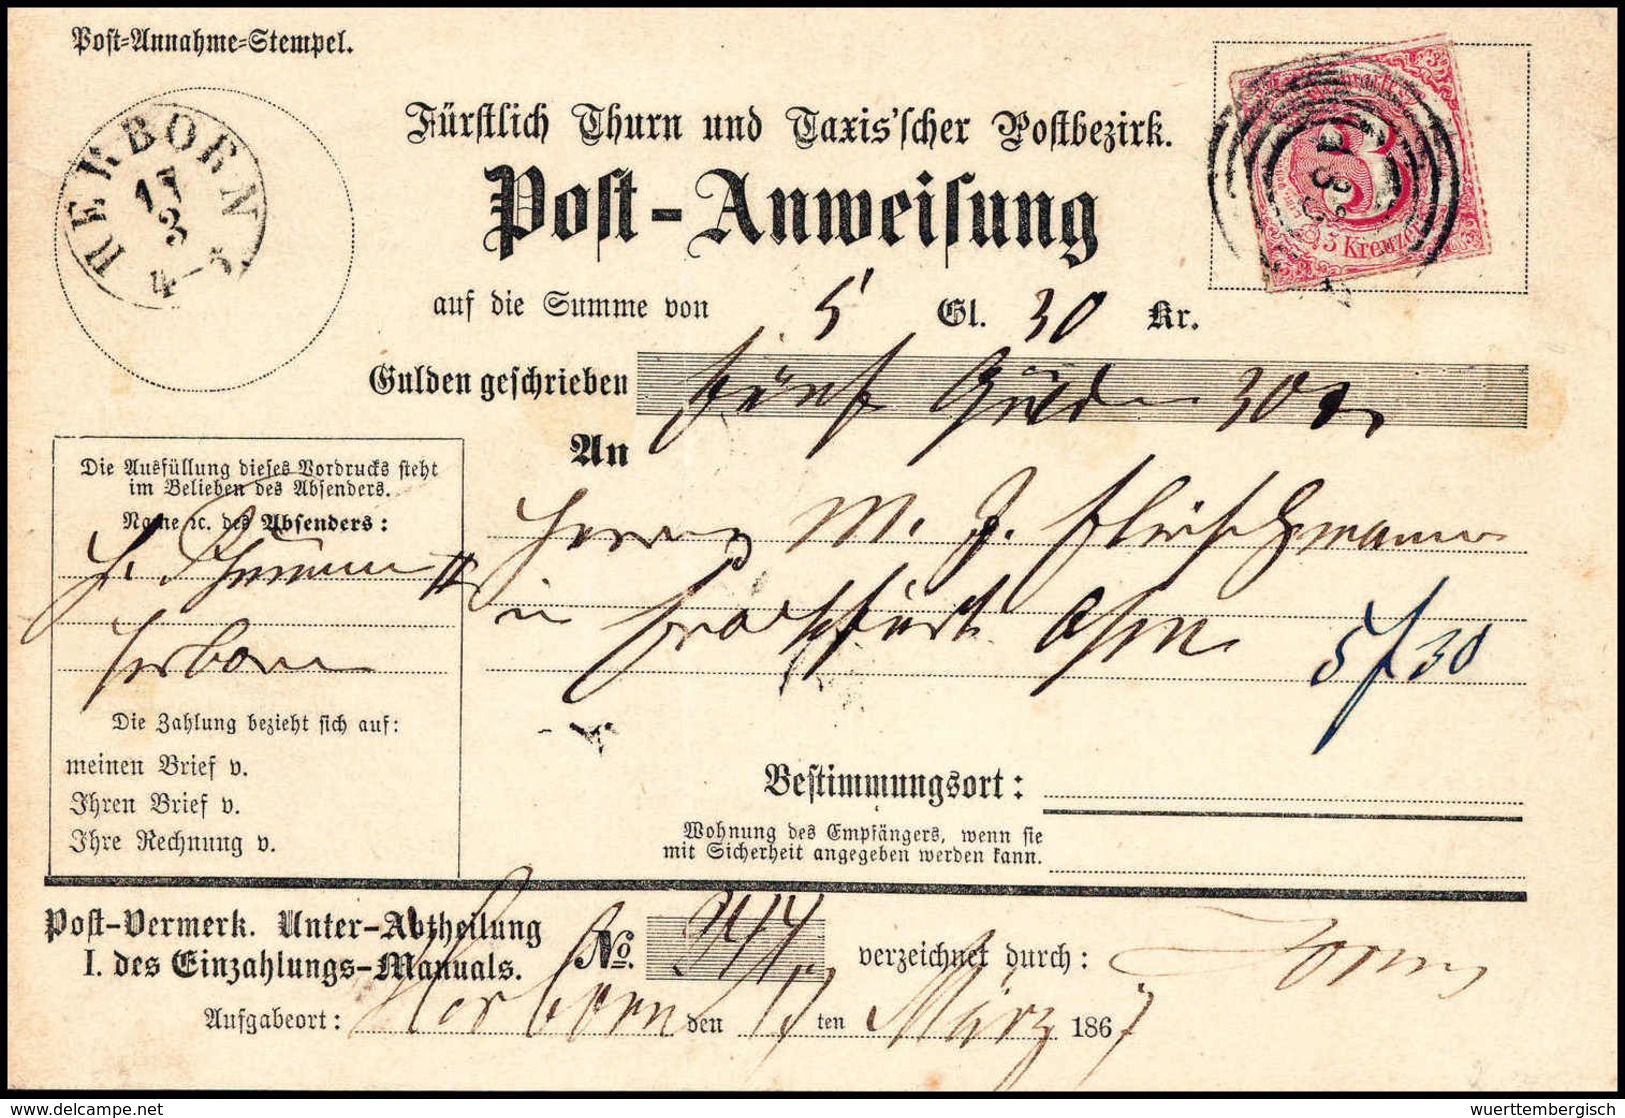 Post-Annahme-Stempel.
HERBORN
17
3
4-5
Fürstlich Thurn und Taxis'scher Postbezirk.
3
3 Kreuzer
Post-Anweisung
auf die Summe von 5 Gl. 30 Kr.
Gulden geschrieben fünf Guld 30
An
Die Ausfüllung dieses Vordrucks steht
im Belieben des Absenders.
Name ꝛc. des Absenders:
Herborn
Herrn M. J. Fleischmann
in Frankfurt
5 f 30
Die Zahlung bezieht sich auf:
meinen Brief v.
Ihren Brief v.
Ihre Rechnung v.
Bestimmungsort:
Wohnung des Empfängers, wenn sie
mit Sicherheit angegeben werden kann.
Post-Vermerk. Unter-Abtheilung
I. des Einzahlungs-Manuals. No. verzeichnet durch:
Aufgabeort: Herborn den 17 ten März 1867
wuerttembergisch